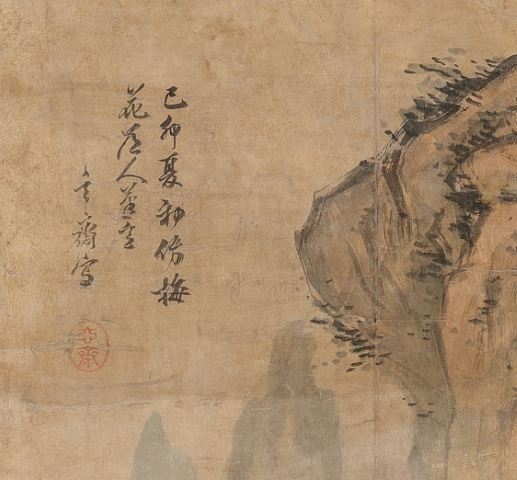 己卯夏初仿梅
花道人筆意
玄齋寫
玄齋